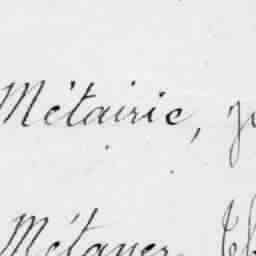 Métairie,
Métayer